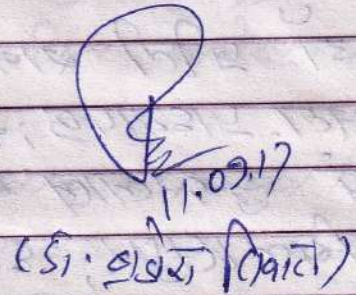 11.09.17
(डॉ. ब्रजेश तिवारी)